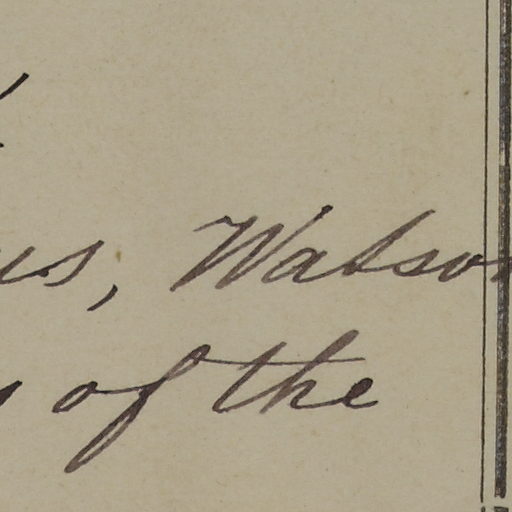 us, Watson
of the